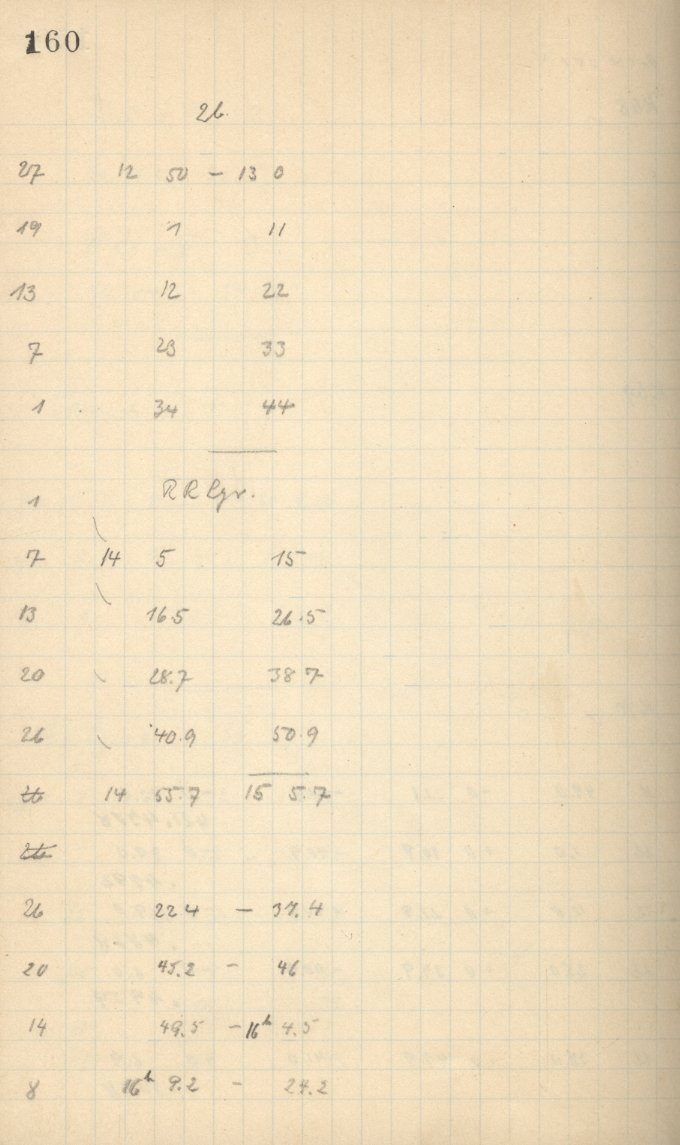 160
26.
27 12 50 – 13 0
19 1 11
13 12 22
7 23 33
1 34 44
1 RR Lyr.
7 14 5 15
13 16.5 26.5
20 28.7 38 7
26 40.9 50.9
26 14 55.7 15 5.7
26
26 22 4 – 37.4
20 45.2 – 46
14 49.5 – 16h 4.5
8 16h 9.2 – 24.2